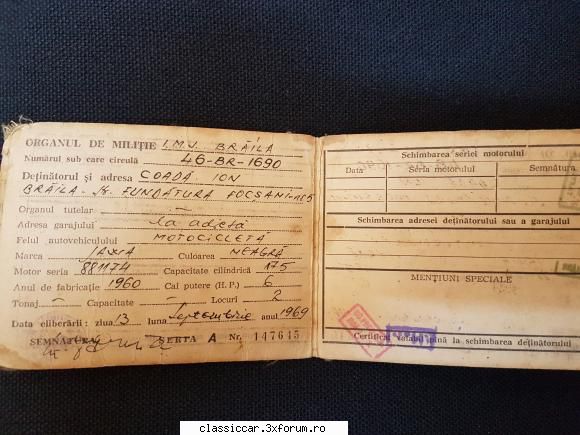 ORGANUL DE MILIȚIE I.M.J. BRĂILA
Numărul sub care circulă 46-BR-1690
Deținătorul și adresa COADĂ ION
BRĂILA - FUNDĂTURA FOCȘANI
Organul tutelar —
Adresa garajului la adresă
Felul autovehiculului MOTOCICLETĂ
Marca Culoarea NEAGRĂ
Motor seria 881174 Capacitate cilindrică 175
Anul de fabricație 1960 Cai putere (H. P.) 6
Tonaj — Capacitate — Locuri 2
Data eliberării : ziua 13 luna Septembrie anul 1969
SEMNĂTURA SERIA A Nr. 147645
Schimbarea seriei motorului
Data Seria motorului Semnătura
Schimbarea adresei deținătorului sau a garajului
MENȚIUNI SPECIALE
Certificat valabil pînă la schimbarea deținătorului
classiccar.3xforum.ro